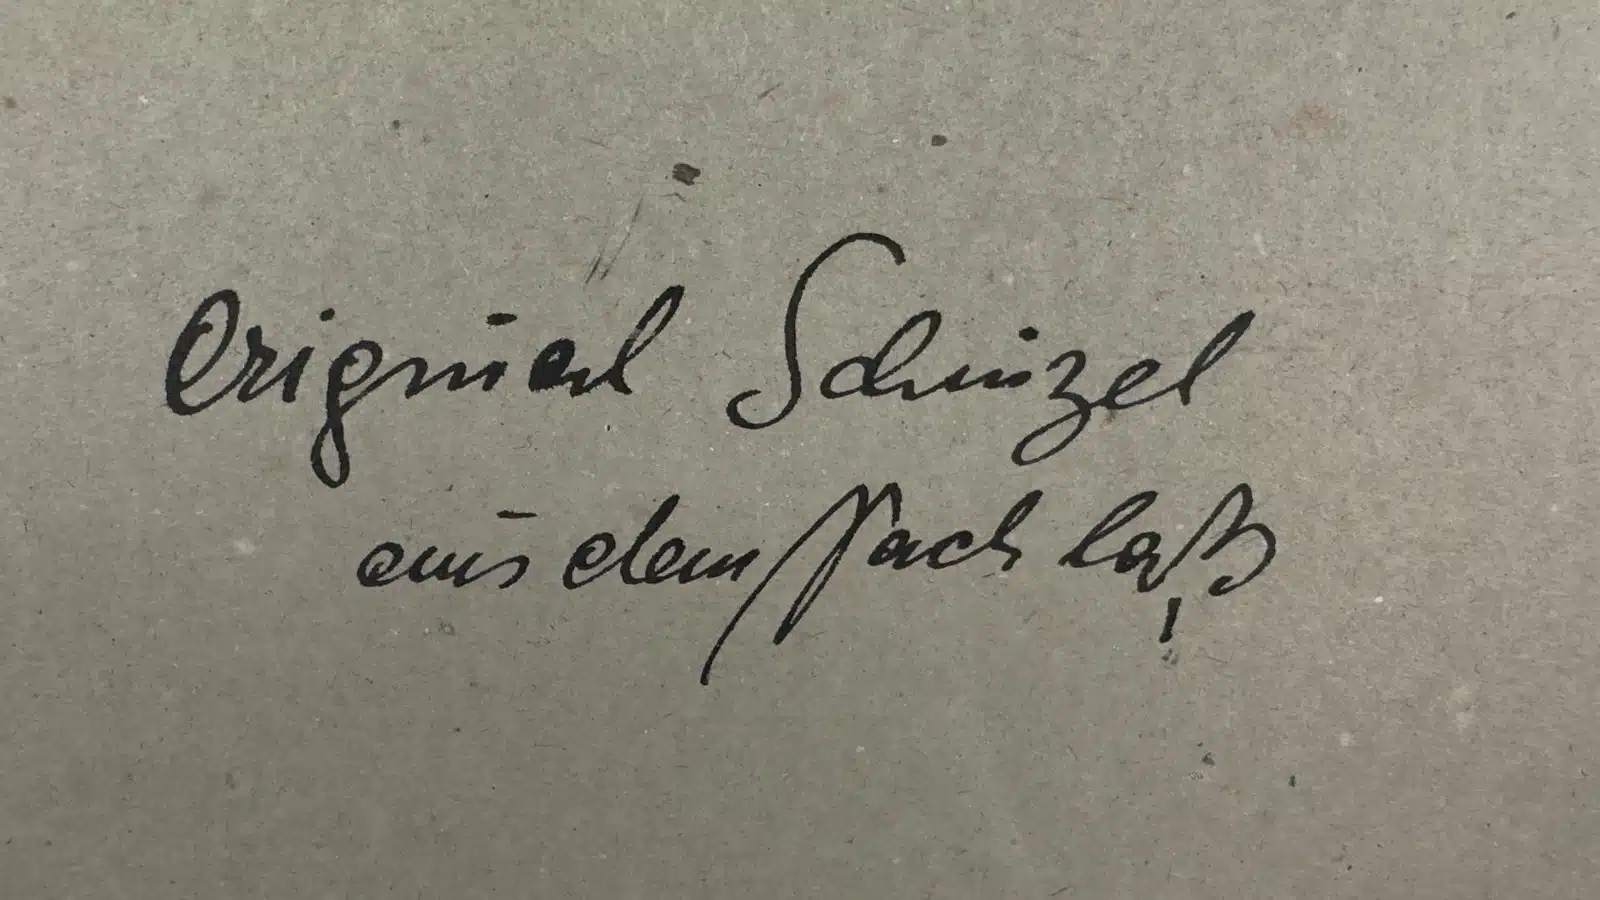 Original Schinzel
aus dem Nachlaß